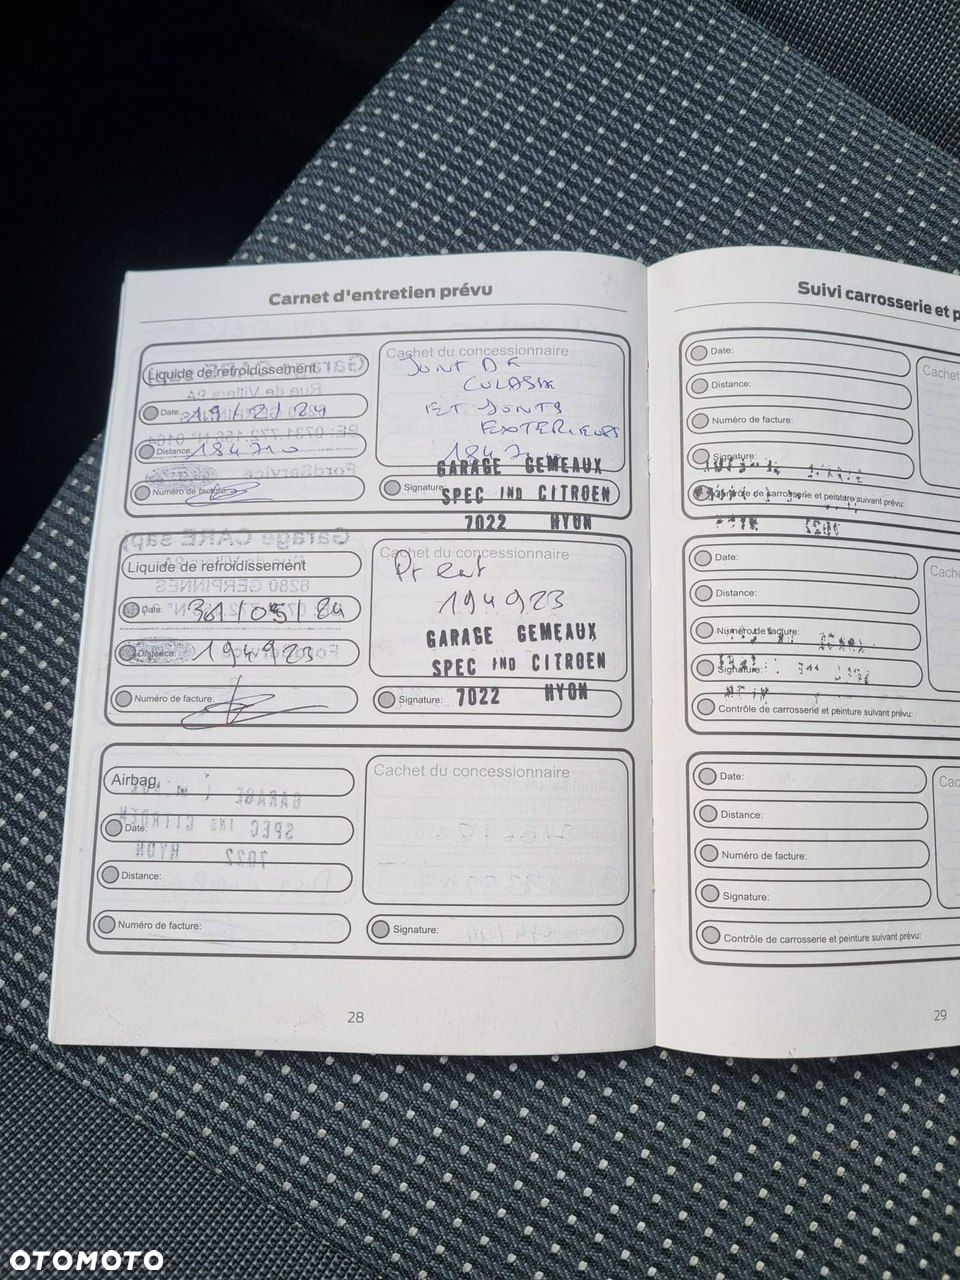 Carnet d'entretien prévu
Liquide de refroidissement
Date: 19/2/24
Distance: 184710
Numéro de facture:
Cachet du concessionnaire
JOINT DE
CULASSE
ET JOINTS
EXTERIEURS
Signature:
GARAGE GEMEAUX
SPEC IND CITROEN
7022 HYON
Liquide de refroidissement
Date: 31/05/24
Distance: 194923
Numéro de facture:
Cachet du concessionnaire
194923
GARAGE GEMEAUX
SPEC IND CITROEN
7022 HYON
Signature:
Airbag
Date:
Distance:
Numéro de facture:
Cachet du concessionnaire
Signature:
28
Suivi carrosserie et p
Date:
Distance:
Numéro de facture:
Signature:
Contrôle de carrosserie et peinture suivant prévu:
Cachet
Date:
Distance:
Numéro de facture:
Signature:
Contrôle de carrosserie et peinture suivant prévu:
Cache
Date:
Distance:
Numéro de facture:
Signature:
Contrôle de carrosserie et peinture suivant prévu:
Cac
29
OTOMOTO